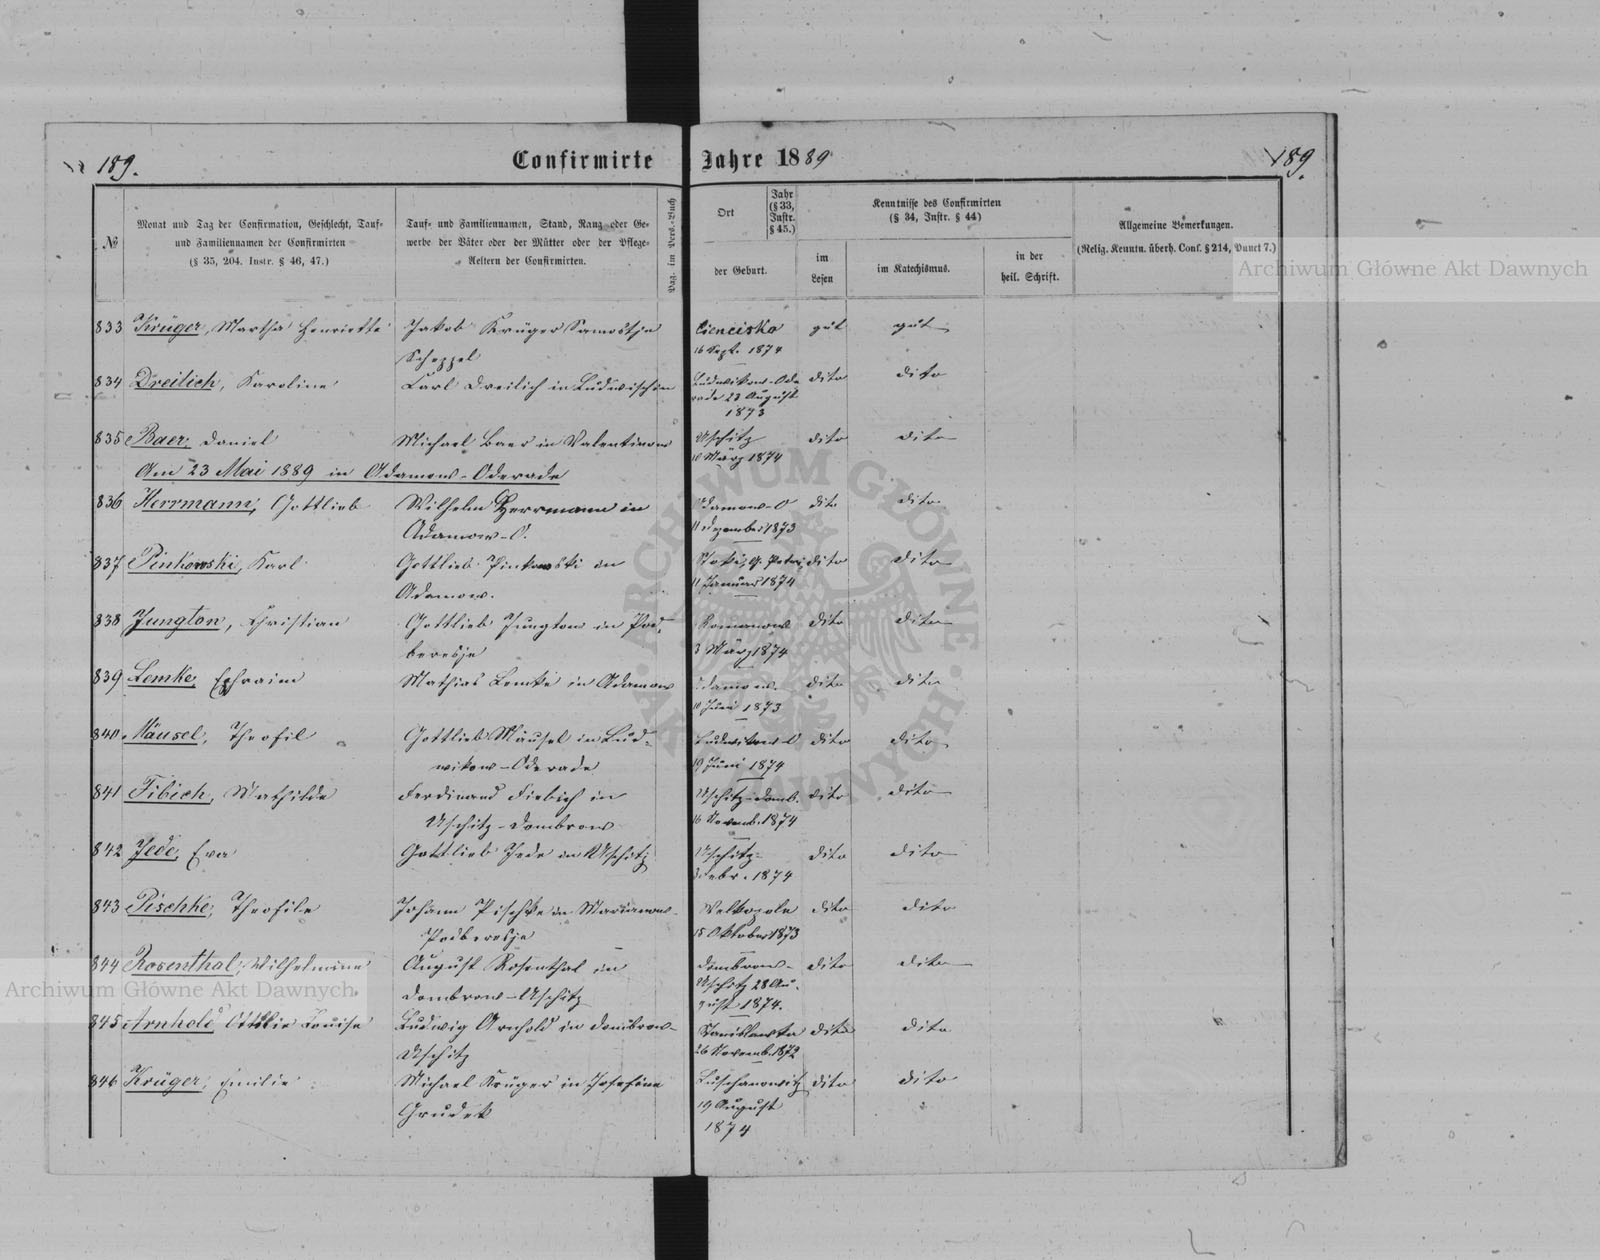 189.
Confirmirte Jahre 1889
189.
№
Monat und Tag der Confirmation, Geschlecht, Tauf-
und Familiennamen der Confirmirten
(§ 35, 204. Instr. § 46, 47.)
Tauf- und Familiennamen, Stand, Rang oder Ge-
werbe der Väter oder der Mütter oder der Pflege-
Aeltern der Confirmirten.
Pag. im Pers.-Buch
Ort
Jahr
(§ 33,
Instr.
§ 45.)
der Geburt.
Kenntnisse des Confirmirten
(§ 34, Instr. § 44)
im
Lesen
im Katechismus.
in der
heil. Schrift.
Allgemeine Bemerkungen.
(Relig. Kenntn. überh. Conf. § 214, Punct 7.)
Archiwum Główne Akt Dawnych
833 Krüger, Martha Henriette Jakob Krüger Samostje gut gut
16 Sept. 1874
834 Dreilich, Karoline Carl Dreilich in Ludwischin Ludwikow-Ode dito dito
rade 23 August
1873
835 Baer, Daniel Michael Baer in Valentinow Uschitz dito dito
10 März 1874
Am 23 Mai 1889 in Adamow-Oderade
836 Herrmann, Gottlieb Wilhelm Herrmann in Adamow-O dito dito
Adamow-O. 11 Dezember 1873
837 Pinkowski, Karl Gottlieb Pinkowski in dito dito
Adamow. 11 Januar 1874
838 Jungton, Christian Gottlieb Jungton in Pod- Romanow dito dito
beresje 3 März 1874
839 Lemke, Ephraim Mathias Lemke in Adamow Adamow. dito dito
10 Juni 1873
840 Mäusel, Theofil Gottlieb Mäusel in Lud- Ludwikow-O dito dito
wikow-Oderade 19 Juni 1874
841 Fibich, Mathilde Ferdinand Fiebich in Uschitz-Domb. dito dito
Uschitz-Dombrow 16 Novemb. 1874
842 Jede, Eva Gottlieb Jede in Uschitz Uschitz dito dito
Febr. 1874
843 Pischke, Theofile Johann Pischke in Marianow- Welkopole dito dito
Podberesje 15 Oktober 1873
844 Rosenthal, Wilhelmine August Rosenthal in Dombrow- dito dito
Dombrow-Uschitz Uschitz 28 Au-
gust 1874.
Archiwum Główne Akt Dawnych
845 Arnhold Ottilie Louise Ludwig Arnhold in Dombrow- Stanislawka dito dito
Uschitz 26 Novemb. 1872
846 Krüger, Emilie Michael Krüger in Josefine Luschanowitz dito dito
Grudek 19 August
1874
ARCHIWUM GŁÓWNE AKT DAWNYCH